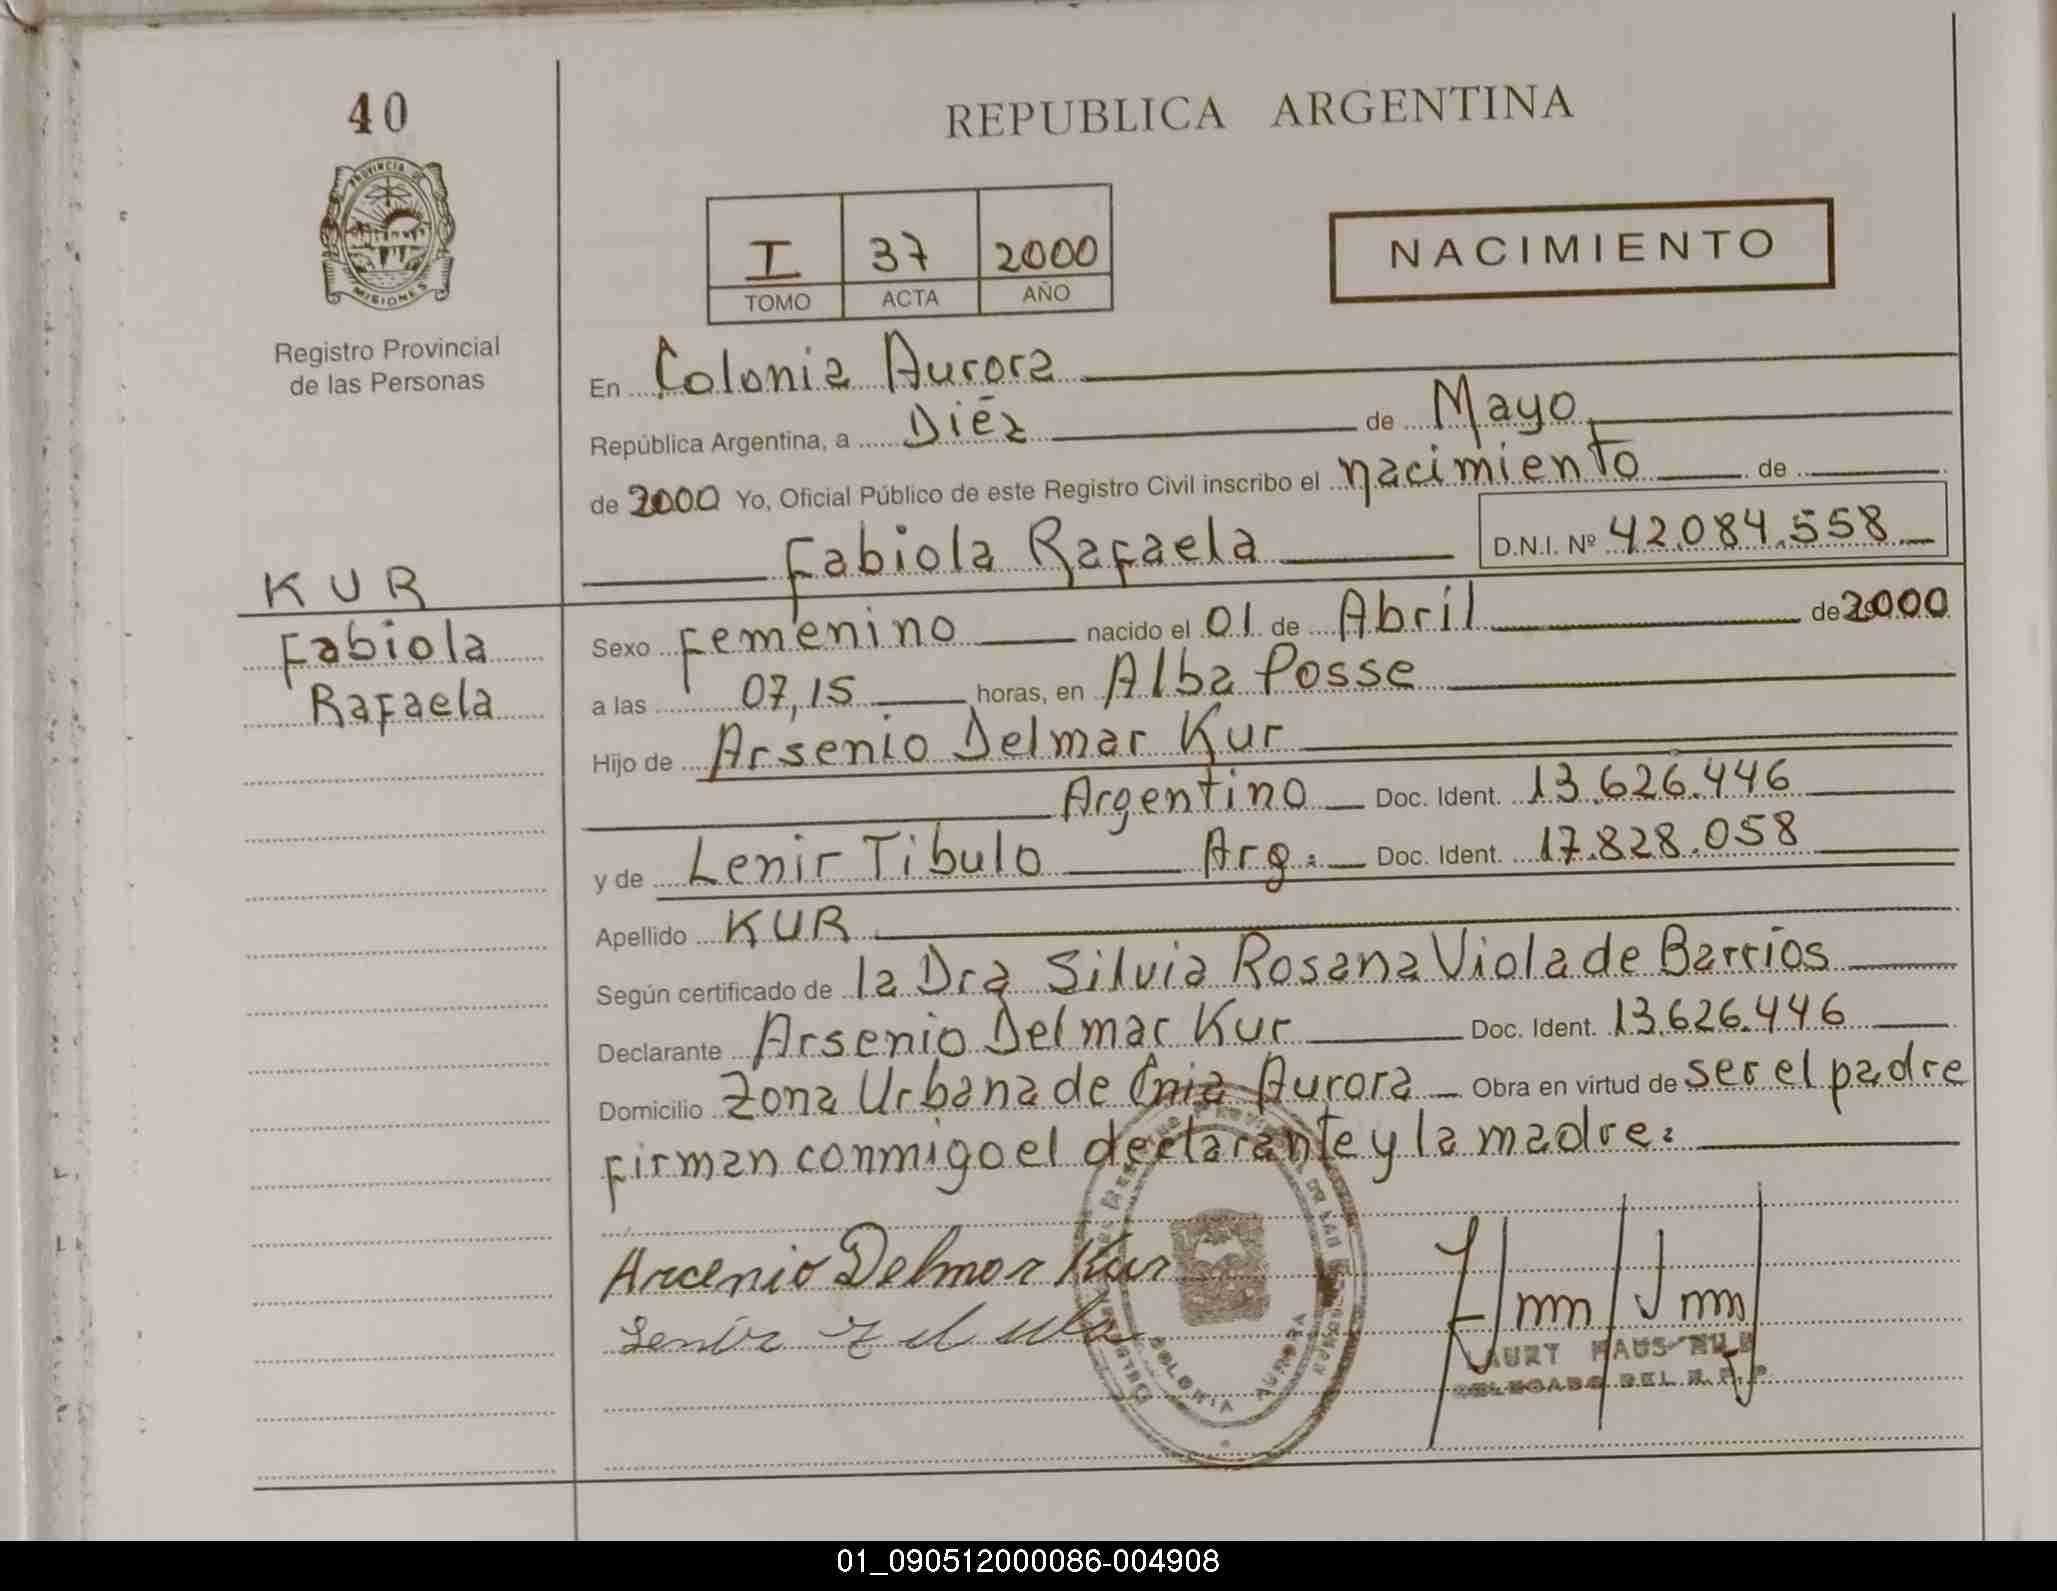 40
PROVINCIA DE
MISIONES
Registro Provincial
de las Personas
REPUBLICA ARGENTINA
I 37 2000
TOMO ACTA AÑO
NACIMIENTO
En Colonia Aurora
República Argentina, a Diéz de Mayo
de 2000 Yo, Oficial Público de este Registro Civil inscribo el nacimiento de
Fabiola Rafaela D.N.I. Nº 42.084.558
KUR
Fabiola
Rafaela
Sexo Femenino nacido el 01 de Abril de 2000
a las 07,15 horas, en Alba Posse
Hijo de Arsenio Delmar Kur
Argentino Doc. Ident. 13.626.446
y de Lenir Tibulo Arg. Doc. Ident. 17.828.058
Apellido KUR
Según certificado de la Dra Silvia Rosana Viola de Barrios
Declarante Arsenio Delmar Kur Doc. Ident. 13.626.446
Domicilio Zona Urbana de Cnia Aurora Obra en virtud de ser el padre
firman conmigo el declarante y la madre:
Arcenio Delmar Kur
Lenir
COLONIA AURORA
DELEGADO DEL R. P. P.
01_090512000086-004908